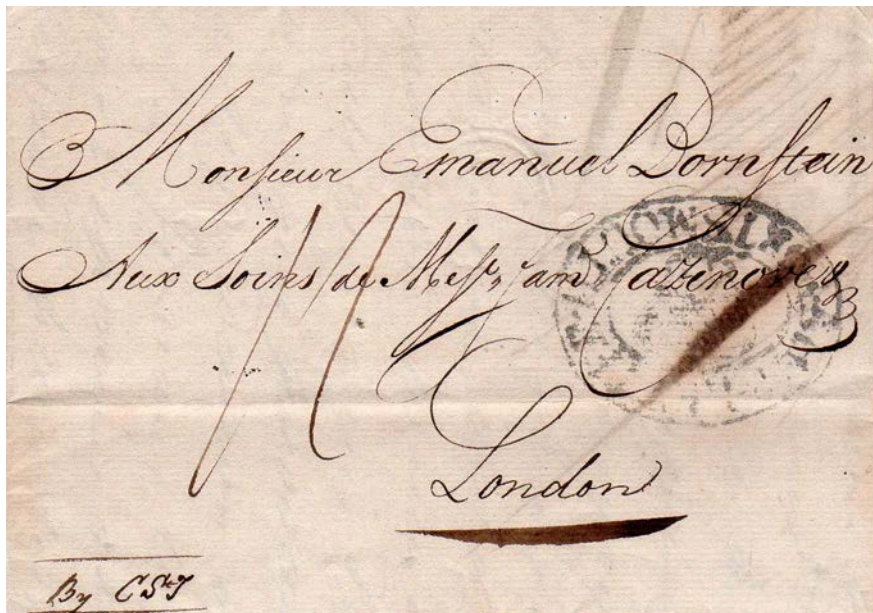 Monsieur Emanuel Dornstein
Aux Soins de Mess.rs Jam Cazenove &
London
By CStT